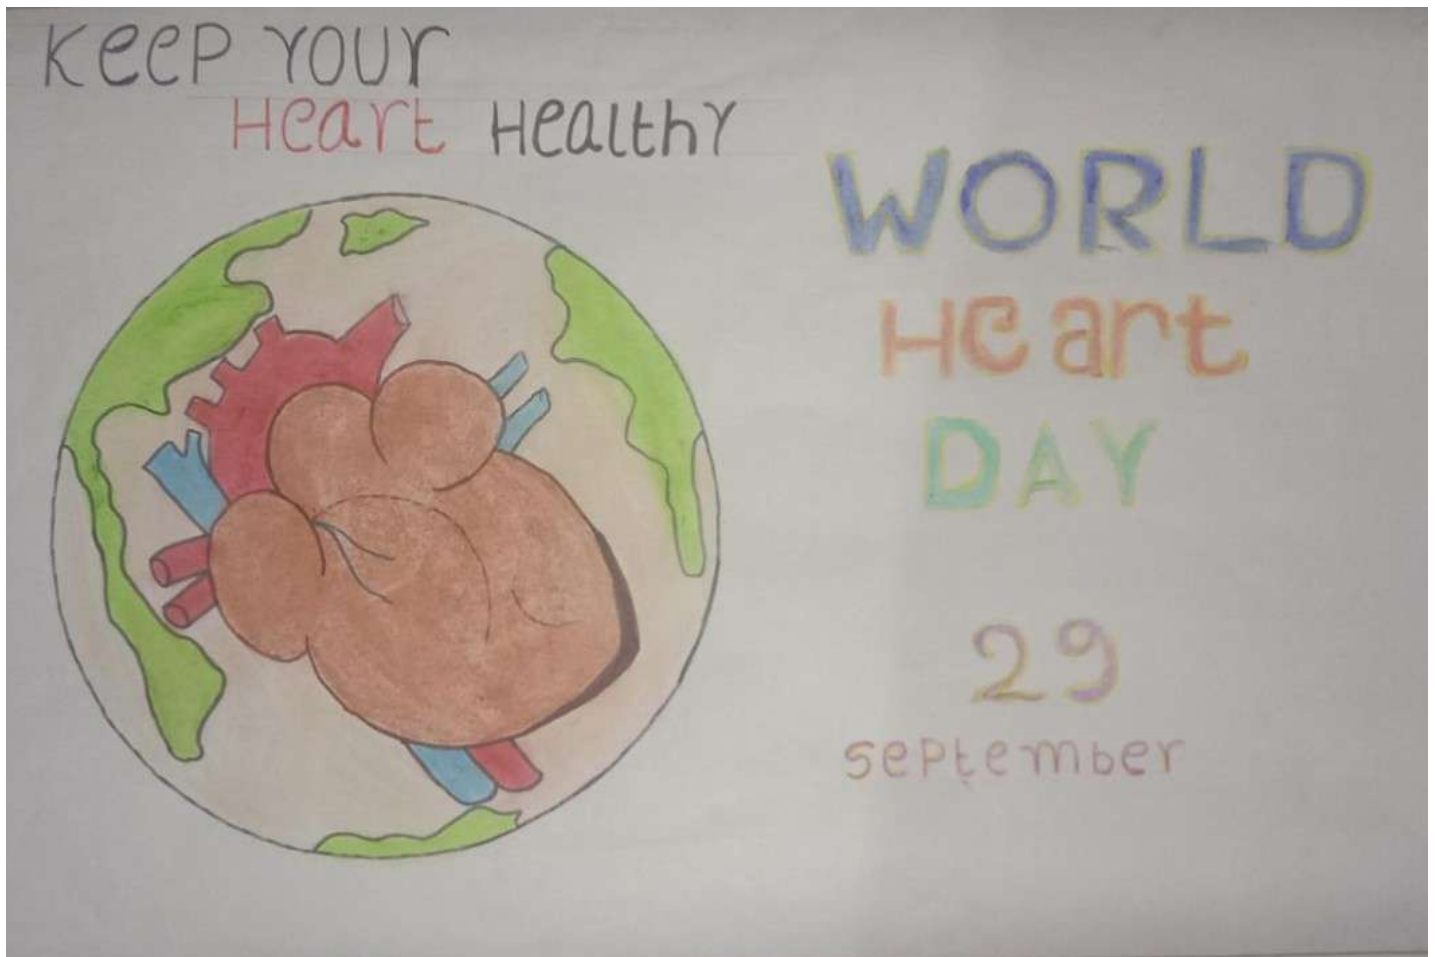 KeeP YOUr
Heart HealthY
WORLD
Heart
DAY
29
september